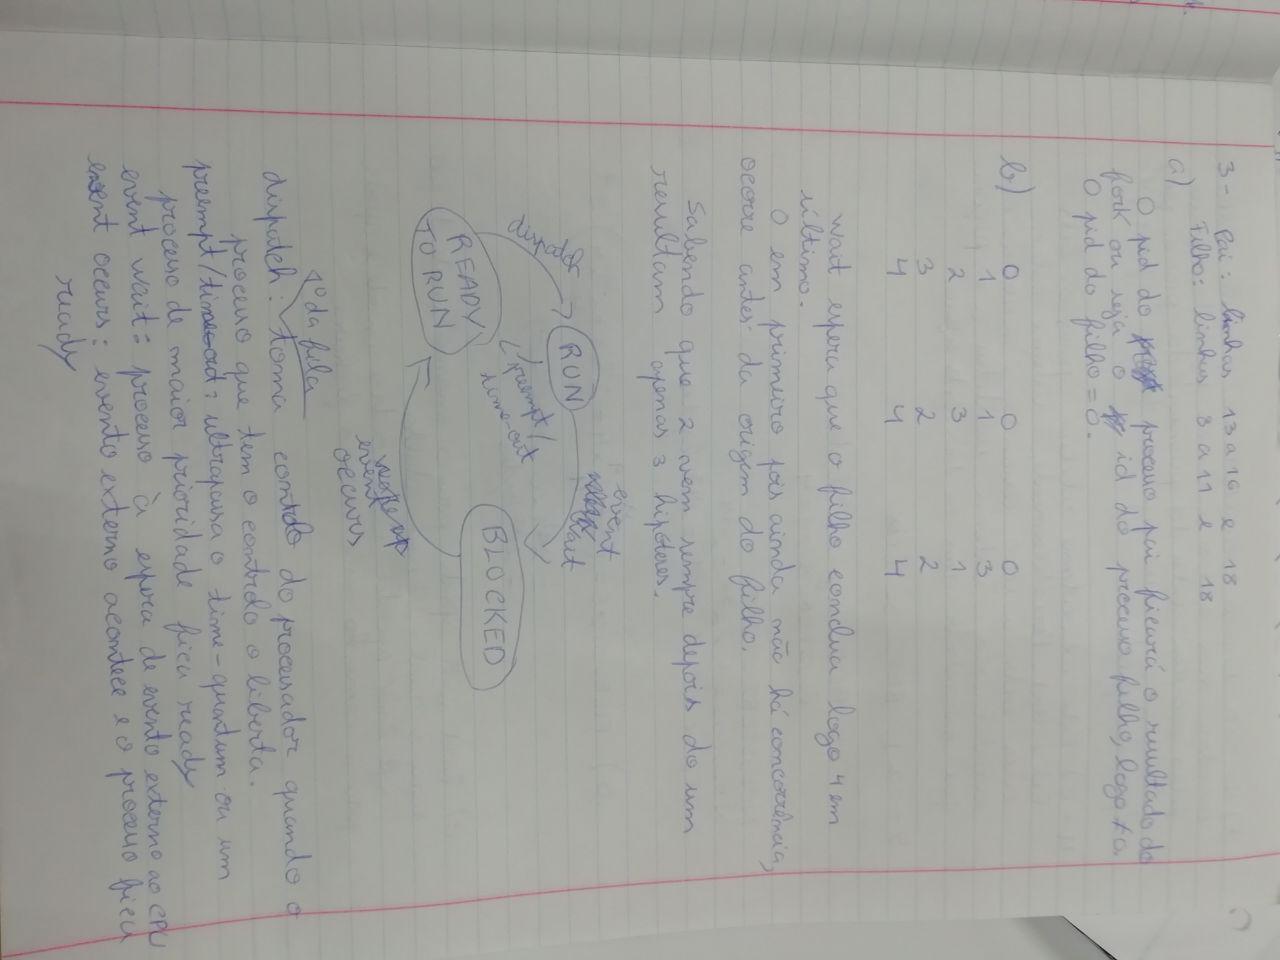 3- Pai: linhas 13 a 16 e 18
Filho: linhas 8 a 11 e 18
a)
O pid do processo pai ficará o resultado do
fork ou seja o id do processo filho, logo ≠ 0.
O pid do filho = 0.
b) 0 0 0
1 1 3
2 3 1
3 2 2
4 4 4
wait espera que o filho conclua logo 4 em
último.
O em primeiro pois ainda não há concorrência,
ocorre antes da origem do filho.
Sabendo que 2 vem sempre depois do um
resultam apenas 3 hipóteses.
event
wait
dispatch
RUN
preempt/
time-out
BLOCKED
READY
TO RUN
event
occurs
1º da fila
dispatch: toma controlo do processador quando o
processo que tem o controlo o liberta.
preempt/time-out: ultrapassa o time-quantum ou um
processo de maior prioridade fica ready
event wait: processo à espera de evento externo ao CPU
event occurs: evento externo acontece e o processo fica
ready